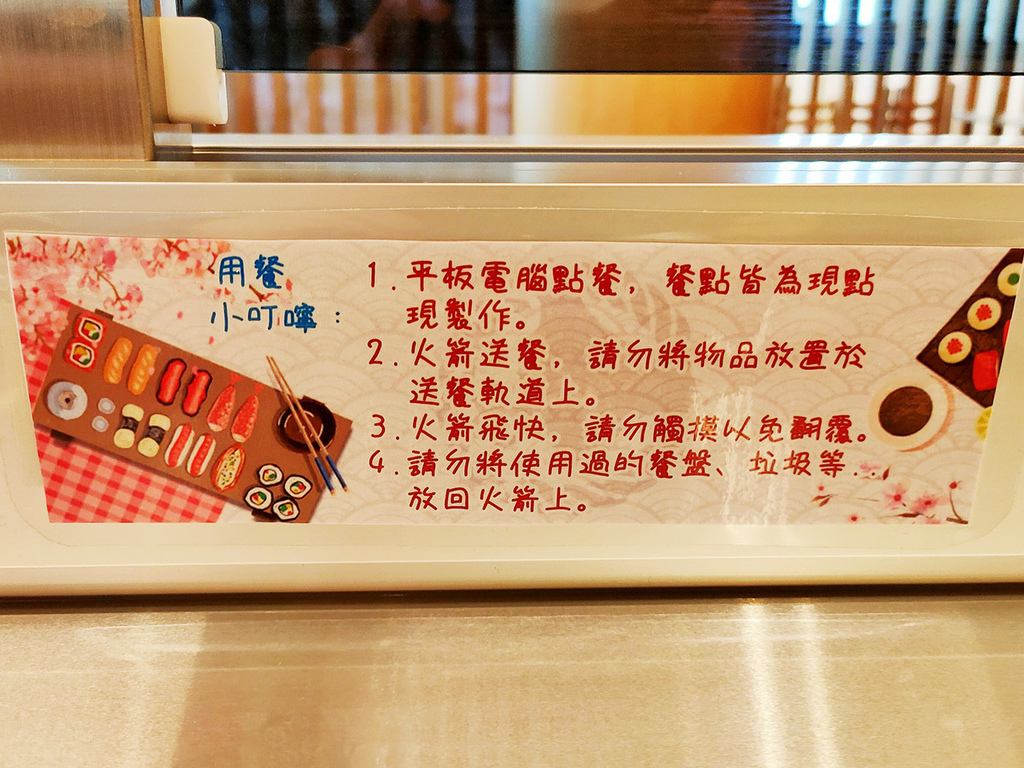 用餐
小叮嚀：
1.平板電腦點餐，餐點皆為現點
現製作。
2.火箭送餐，請勿將物品放置於
送餐軌道上。
3.火箭飛快，請勿觸摸以免翻覆。
4.請勿將使用過的餐盤、垃圾等
放回火箭上。